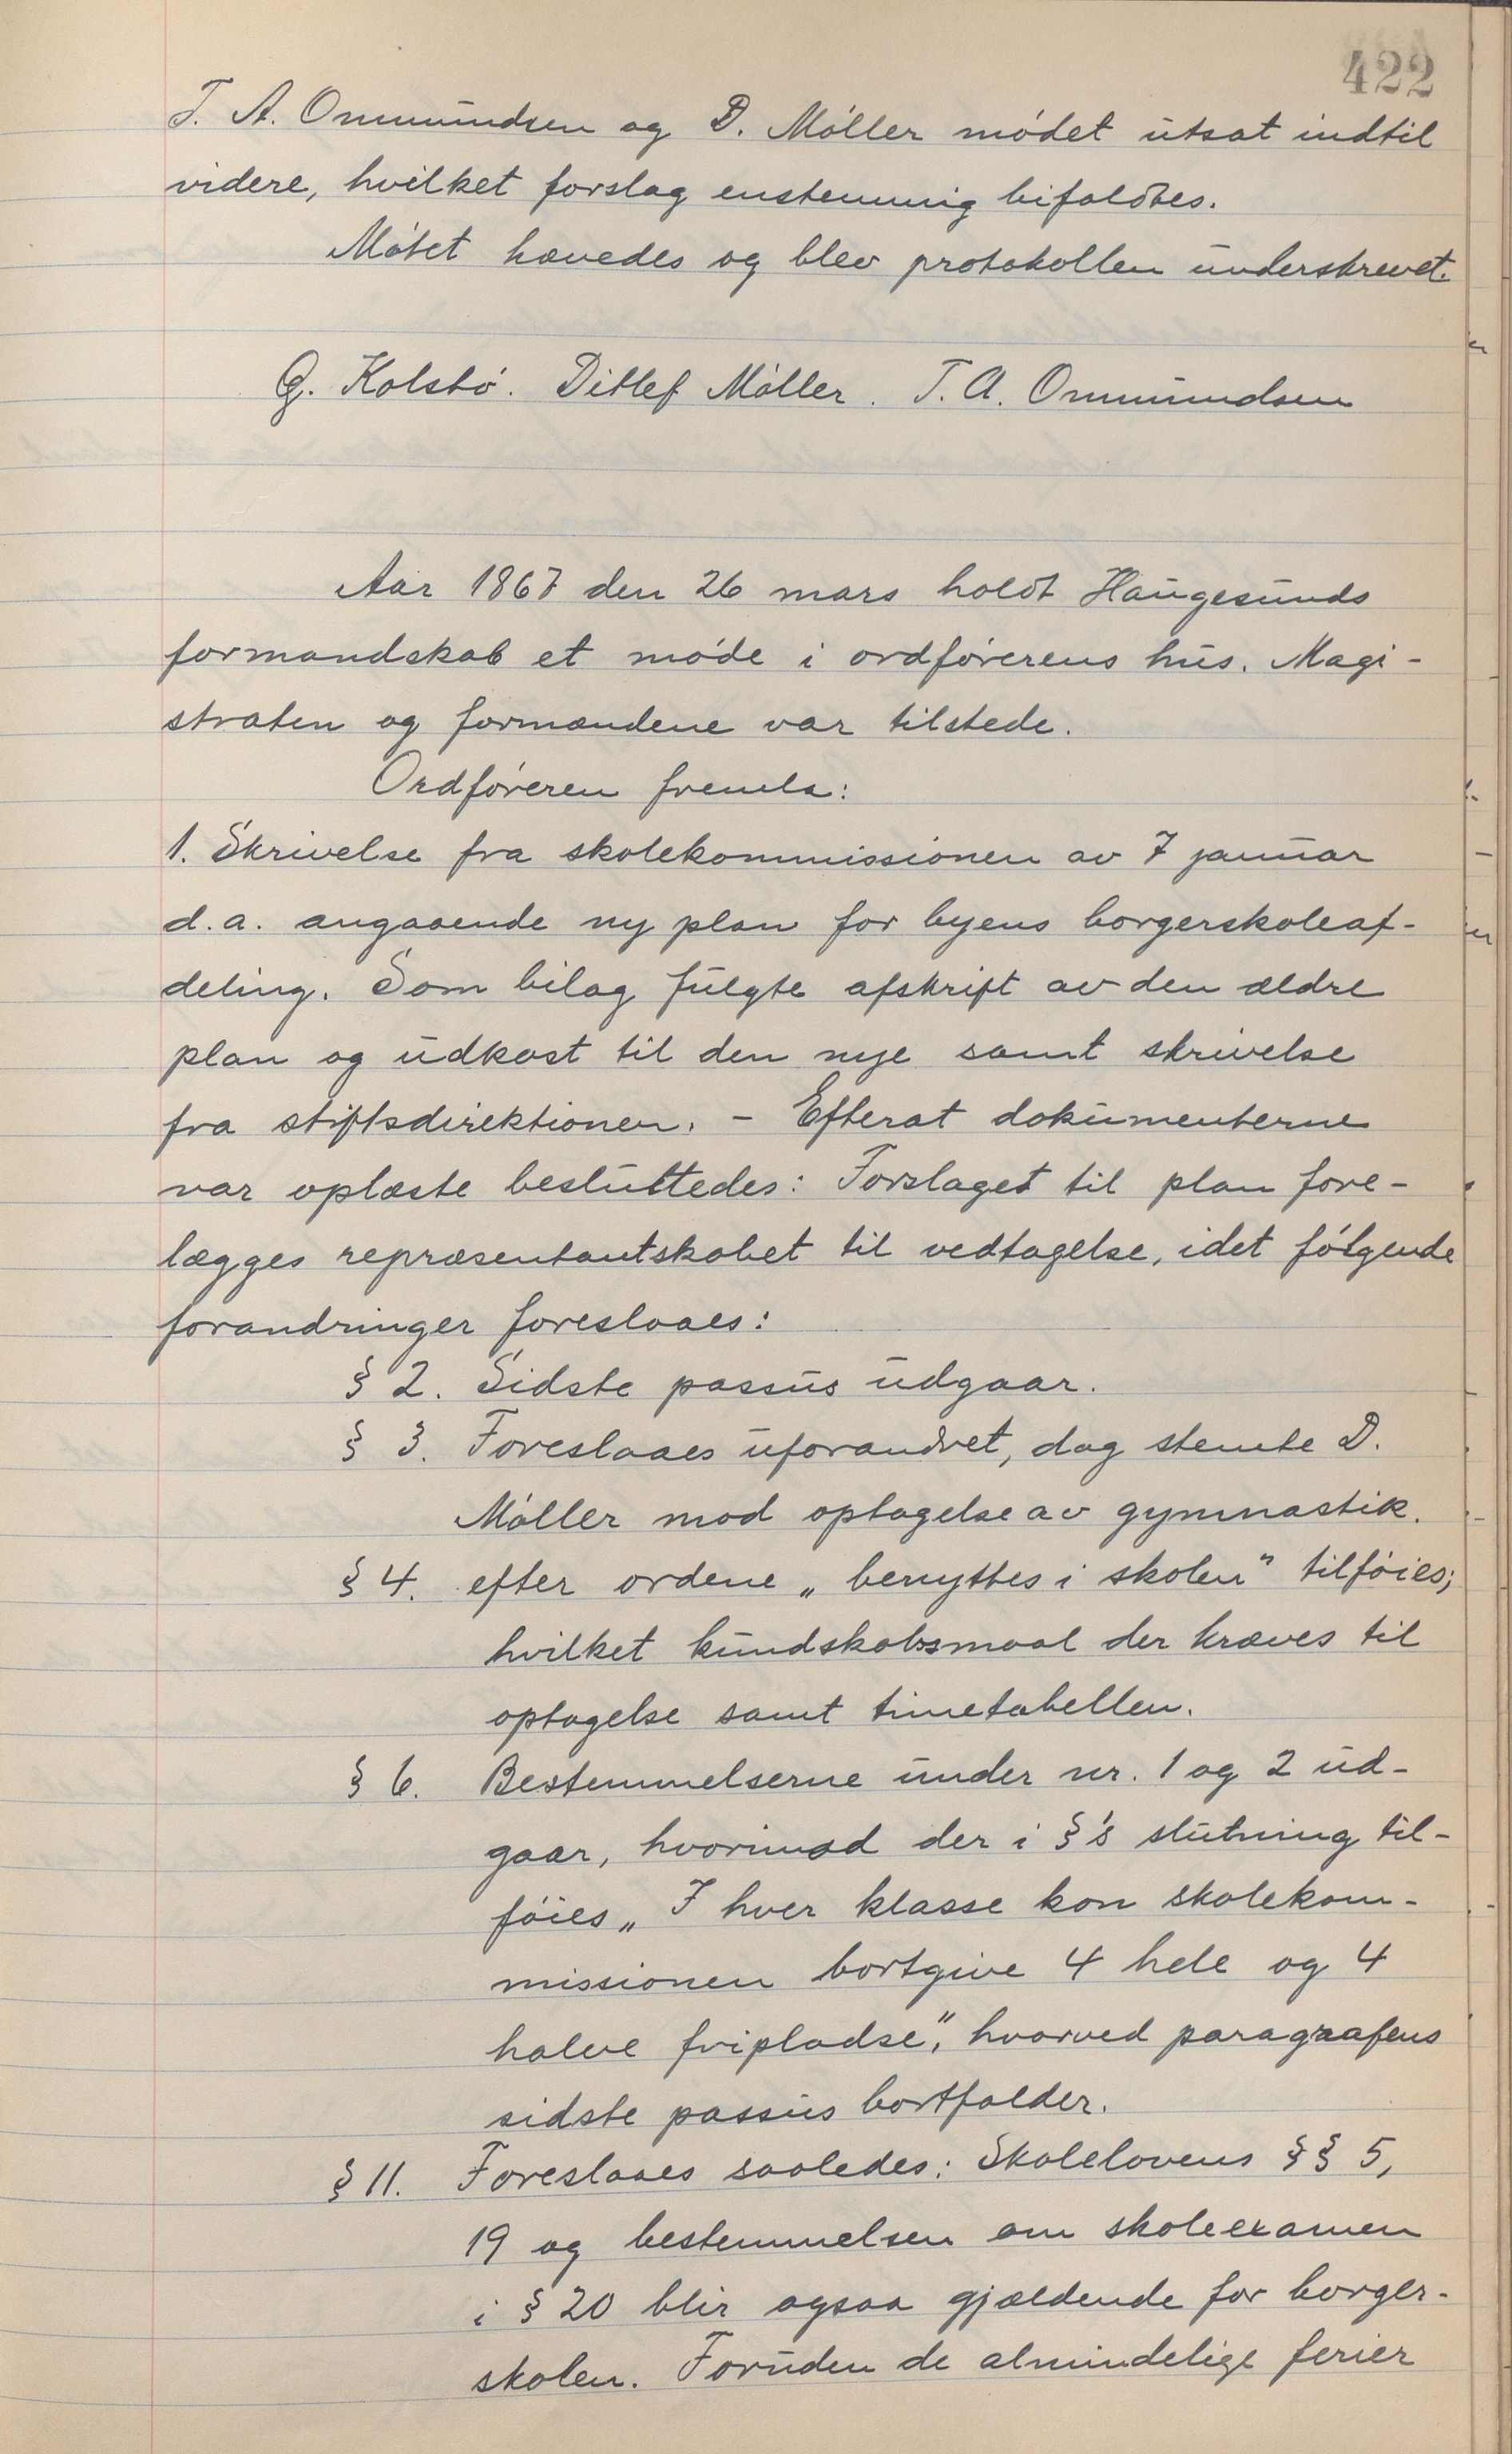 422
T. A. Ommundsen og D. Møller mødet utsat indtil
videre, hvilket forslag enstemmig bifaldtes.
Møtet hævedes og blev protokollen underskrevet.
G. Kolstø. Ditlef Møller. T. A. Ommundsen
Aar 1867 den 26 mars holdt Haugesunds
formandskab et møde i ordførerens hus. Magi-
straten og formændene var tilstede.
Ordføreren fremla:
1. Skrivelse fra skolekommissionen av 7 januar
d.a. angaaende ny plan for byens borgerskoleaf-
deling. Som bilag fulgte afskrift av den ældre
plan og udkast til den nye samt skrivelse
fra stiftsdirektionen. - Efterat dokumenterne
var oplæste besluttedes: Forslaget til plan fore-
lægges repræsentantskabet til vedtagelse, idet følgende
forandringer foreslaaes:
§ 2. Sidste passus udgaar.
§ 3. Foreslaaes uforandret, dog stemte D.
Møller mod optagelse av gymnastik.
§ 4. efter ordene „benyttes i skolen" tilføies;
hvilket kundskabsmaal der kræves til
optagelse samt timetabellen.
§ 6. Bestemmelserne under nr. 1 og 2 ud-
gaar, hvorimod der i §'s slutning til-
føies „I hver klasse kan skolekom-
missionen bortgive 4 hele og 4
halve fripladse", hvorved paragraafens
sidste passus bortfalder.
§ 11. Foreslaaes saaledes: Skolelovens §§ 5,
19 og bestemmelsen om skoleexamen
i § 20 blir ogsaa gjældende for borger-
skolen. Foruden de almindelige ferier